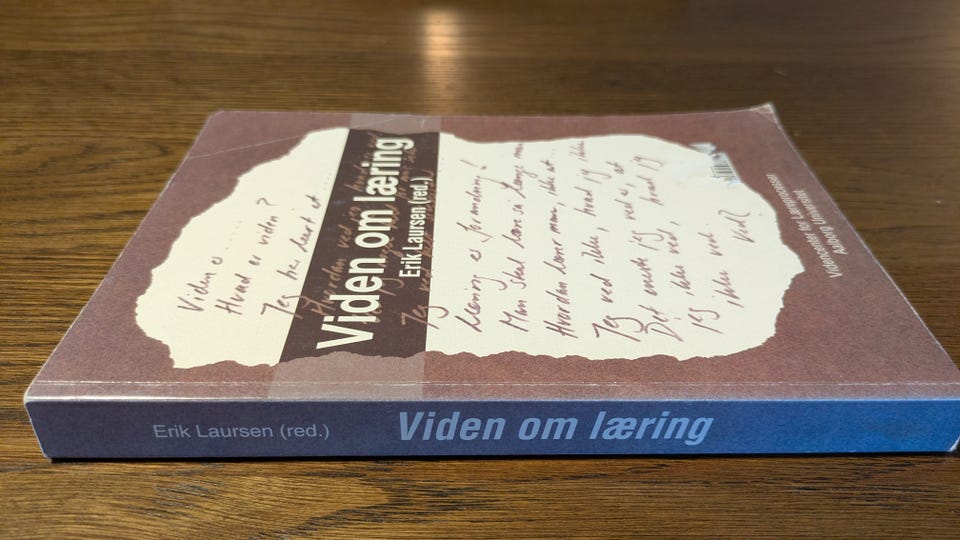 Viden er
Hvad er viden?
Jeg har lært at
Hvordan ved jeg
Jeg ved
Viden om læring
Erik Laursen (red.)
Læring er forandring!
Man skal lære så længe man
Hvordan lærer man, ikke at
Jeg ved ikke, hvad jeg ikke
Det eneste jeg ved er, at
jeg ikke ved, hvad jeg
ikke ved.
Ved?
Videncenter for Læreprocesser
Aalborg Universitet
Erik Laursen (red.)
Viden om læring